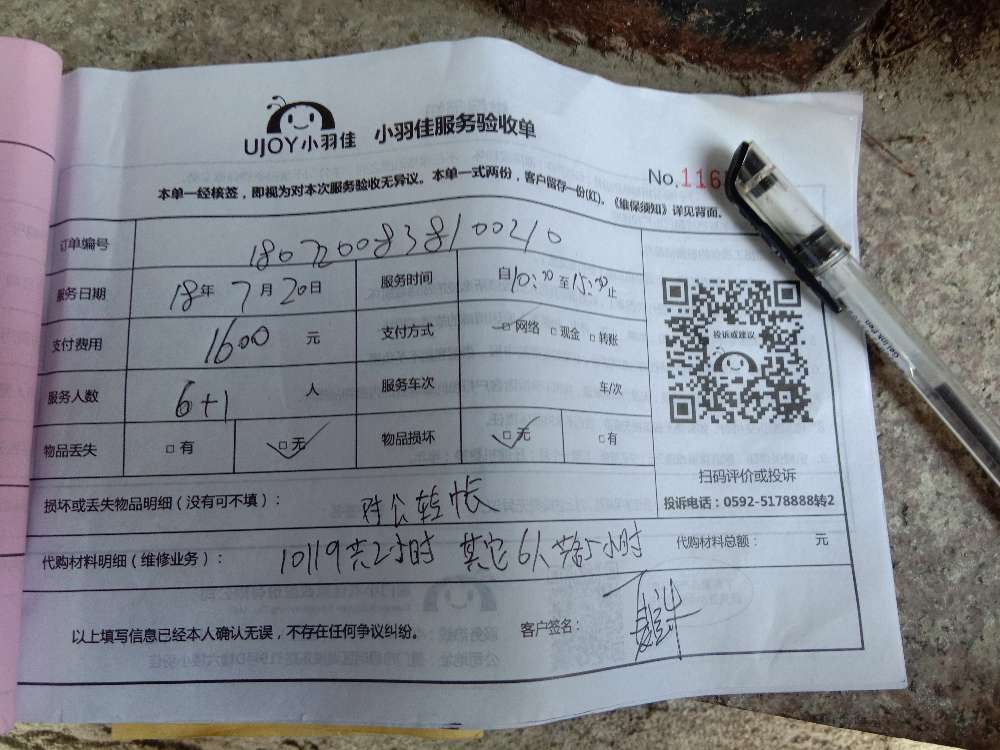 UJOY小羽佳 小羽佳服务验收单
No.116
本单一经核签，即视为对本次服务验收无异议。本单一式两份，客户留存一份(红)，《维保须知》详见背面。
订单编号 1807200838100210
服务日期 18年7月20日 服务时间 自10:00至15:00止
支付费用 1600 元 支付方式 □网络 □现金 □转账
投诉或建议
服务人数 6+1 人 服务车次 车/次
物品丢失 □有 □无 物品损坏 □无 □有
扫码评价或投诉
损坏或丢失物品明细（没有可不填）： 对公转帐
投诉电话：0592-5178888转2
代购材料明细（维修业务）： 10119共2小时 其它6人共5小时 代购材料总额： 元
以上填写信息已经本人确认无误，不存在任何争议纠纷。 客户签名：